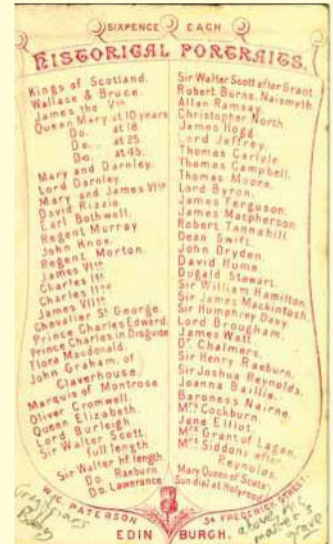 SIXPENCE EACH
HISTORICAL PORTRAITS.
Kings of Scotland.
Wallase & Bruce.
James the Vth
Queen Mary at 10 years
Do. at 18.
Do. at 25.
Do. at 45.
Mary and Darnley.
Lord Darnley.
Mary and James VIth
David Rizzio.
Earl Bothwell.
Regent Murray
John Knox.
Regent Morton.
James VIth
Charles Ist
Charles IInd
James VIIth
Chevalier St George.
Prince Charles Edward.
Prince Charles in Disguise
Flora Macdonald.
John Graham, of
Claverhouse.
Marquis of Montrose
Oliver Cromwell.
Queen Elizabeth.
Lord Burleigh
Sir Walter Scott.
full length.
Sir Walter hf. length.
Do. Raeburn
Do. Lawerance
Sir Walter Scott after Grant.
Robert Burns, Naismyth.
Allan Ramsay.
Christopher North.
James Hogg.
Lord Jeffrey.
Thomas Carlyle.
Thomas Campbell.
Thomas Moore.
Lord Byron.
James Ferguson.
James Macpherson.
Robert Tannahill.
Dean Swift.
John Dryden.
David Hume.
Dugald Stewart.
Sir William Hamilton.
Sir James Mackintosh.
Sir Humphrey Davy.
Lord Brougham.
James Watt.
Dr. Chalmers.
Sir Henry Raeburn.
Sir Joshua Reynolds.
Joanna Baillie.
Baroness Nairne.
Mrs Cockburn.
Jane Elliot.
Mrs Grant of Lagan.
Mrs Siddons after
Reynolds.
Mary Queen of Scots'
Sun dial at Holyrood
Greyfriars
Bobby
above his
master's
grave
W.G. PATERSON
34 FREDERICK STREET.
EDINBURGH.